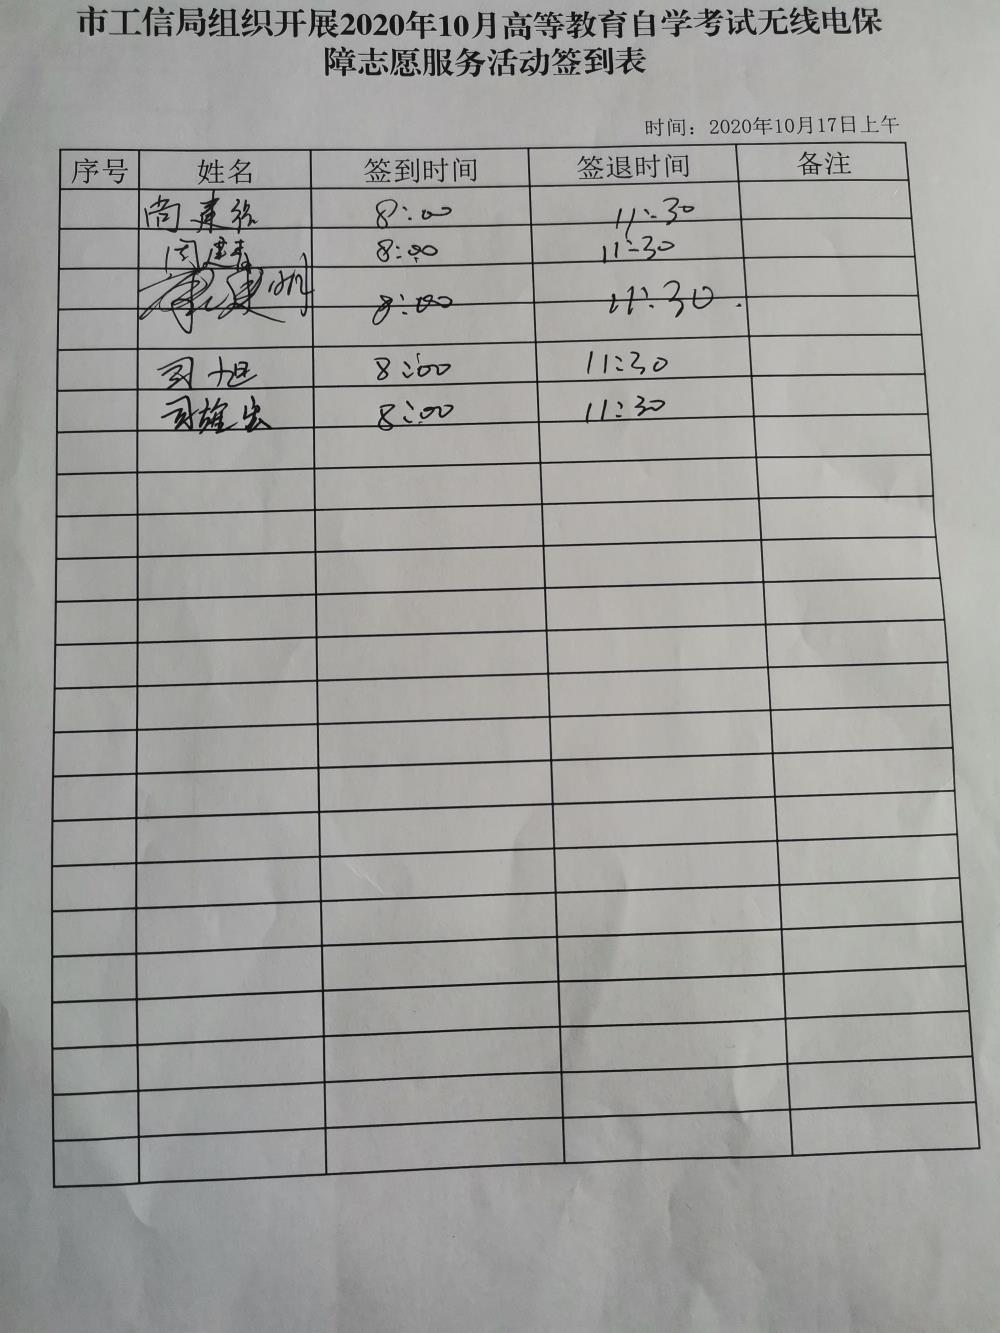 市工信局组织开展2020年10月高等教育自学考试无线电保
障志愿服务活动签到表
时间：2020年10月17日上午
序号 姓名 签到时间 签退时间 备注
尚建 8:00 11:30
8:00 11:30
8:00 11:30
司旭 8:00 11:30
司雄宏 8:00 11:30